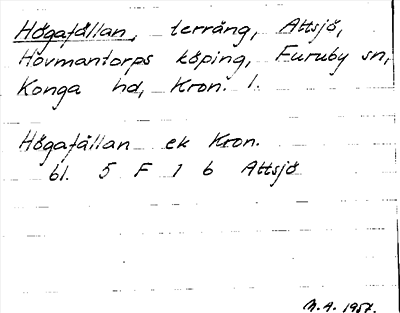 Högafållan, terräng, Attsjö,
Hovmantorps köping, Furuby sn,
Konga hd, Kron. l.
Högafållan ek Kron.
bl. 5 F 1 b Attsjö
M.A. 1957.